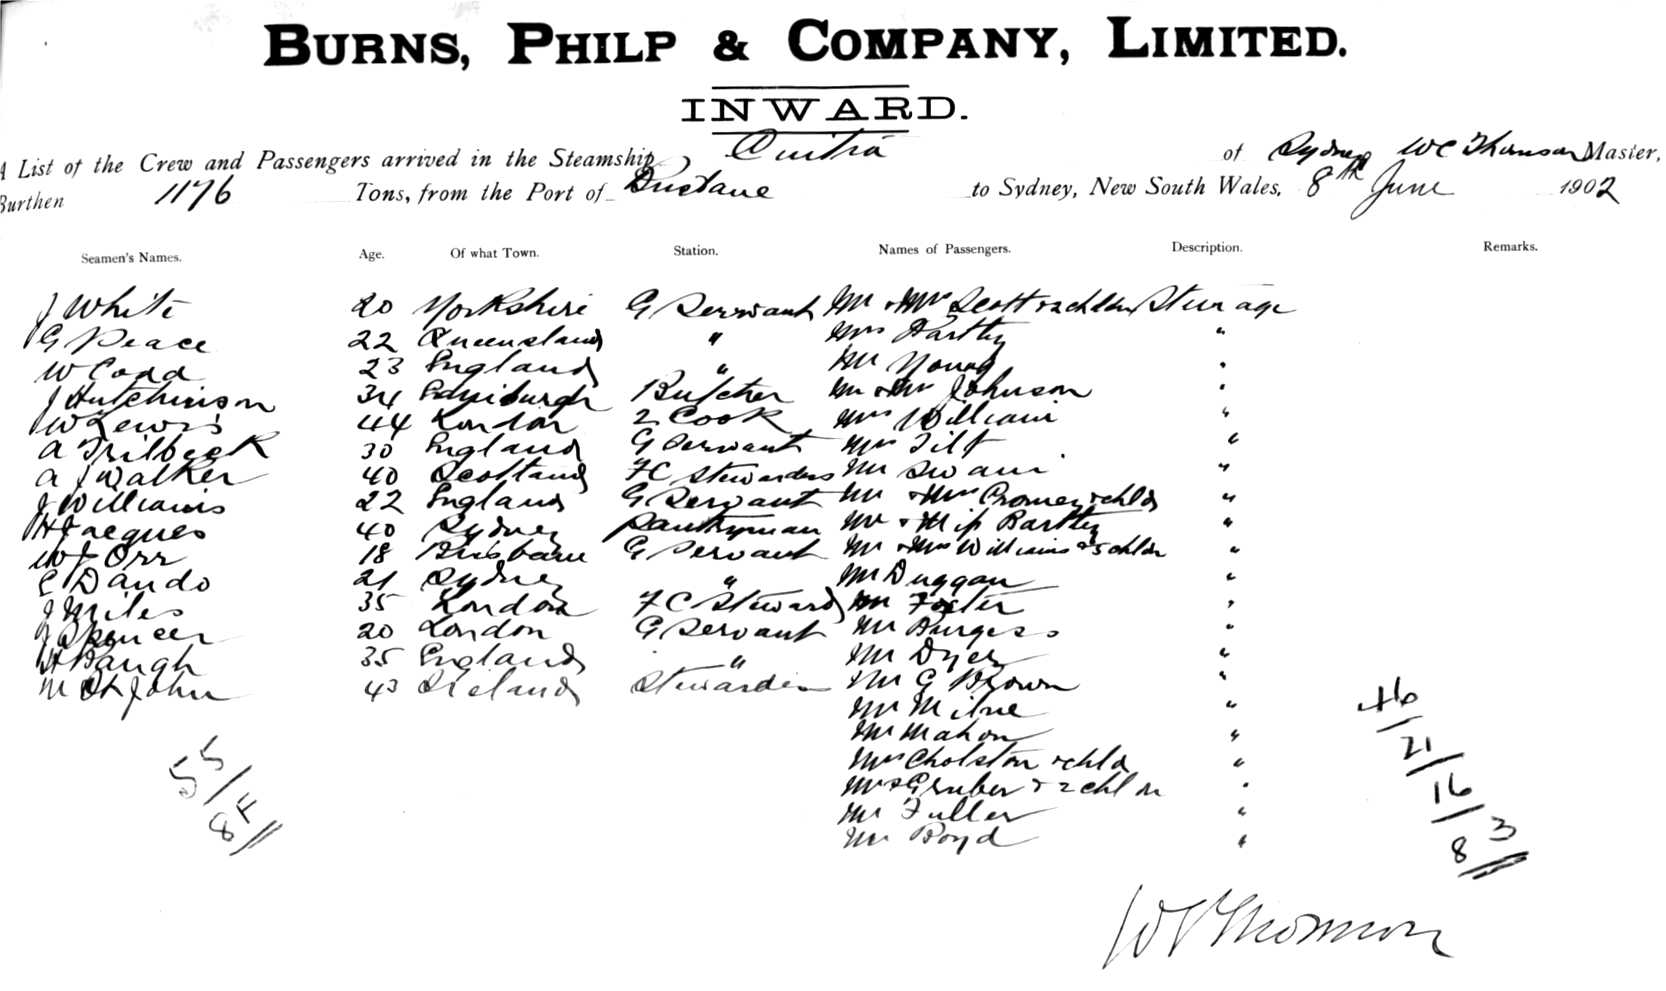 BURNS, PHILP & COMPANY, LIMITED.
INWARD.
A List of the Crew and Passengers arrived in the Steamship of Sydney WC Thomson Master,
Burthen 1176 Tons, from the Port of to Sydney, New South Wales, 8th June 1902
Seamen's Names. Age. Of what Town. Station. Names of Passengers. Description. Remarks.
J White 20 Yorkshire G Servant Mr & Mrs Scott & 2 chldn Steerage
G Peace 22 Queensland " Mrs Hartley "
W Codd 23 England " Mr Young "
J Hutchinson 34 Edinburgh Butcher Mr & Mrs Johnson "
W Lewis 44 London 2 Cook Mrs William "
A Trilbeck 30 England G Servant Mrs Tilt "
A J Walker 40 Scotland FC Stewardess Mr Swain "
J Williams 22 England G Servant Mr & Mrs Cromey & chld "
H Jacques 40 Sydney Pantryman Mr & Miss Bartley "
W J Orr 18 Brisbane G Servant Mr & Mrs Williams & 5 chldn "
E Dando 21 Sydney " Mr Duggan "
J Miles 35 London FC Steward Mr Foster "
J Spencer 20 London G Servant Mr Burgess "
H Baugh 35 England " Mr Dyer "
M St John 43 Ireland Stewardess Mr G Brown "
Mr Milne "
Mr Mahon "
Mrs Cholston & chld "
Mrs Gruber & 2 chldn "
Mr Fuller "
Mr Boyd "
55/8F//
46/21/16/83//
WC Thomson